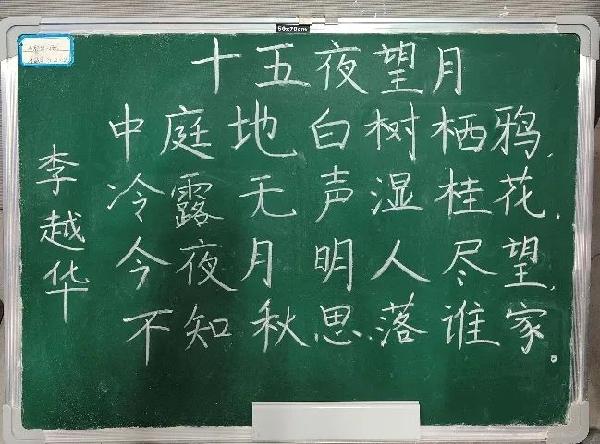 50x70cm
十五夜望月
中庭地白树栖鸦,
冷露无声湿桂花.
今夜月明人尽望,
不知秋思落谁家。
李越华